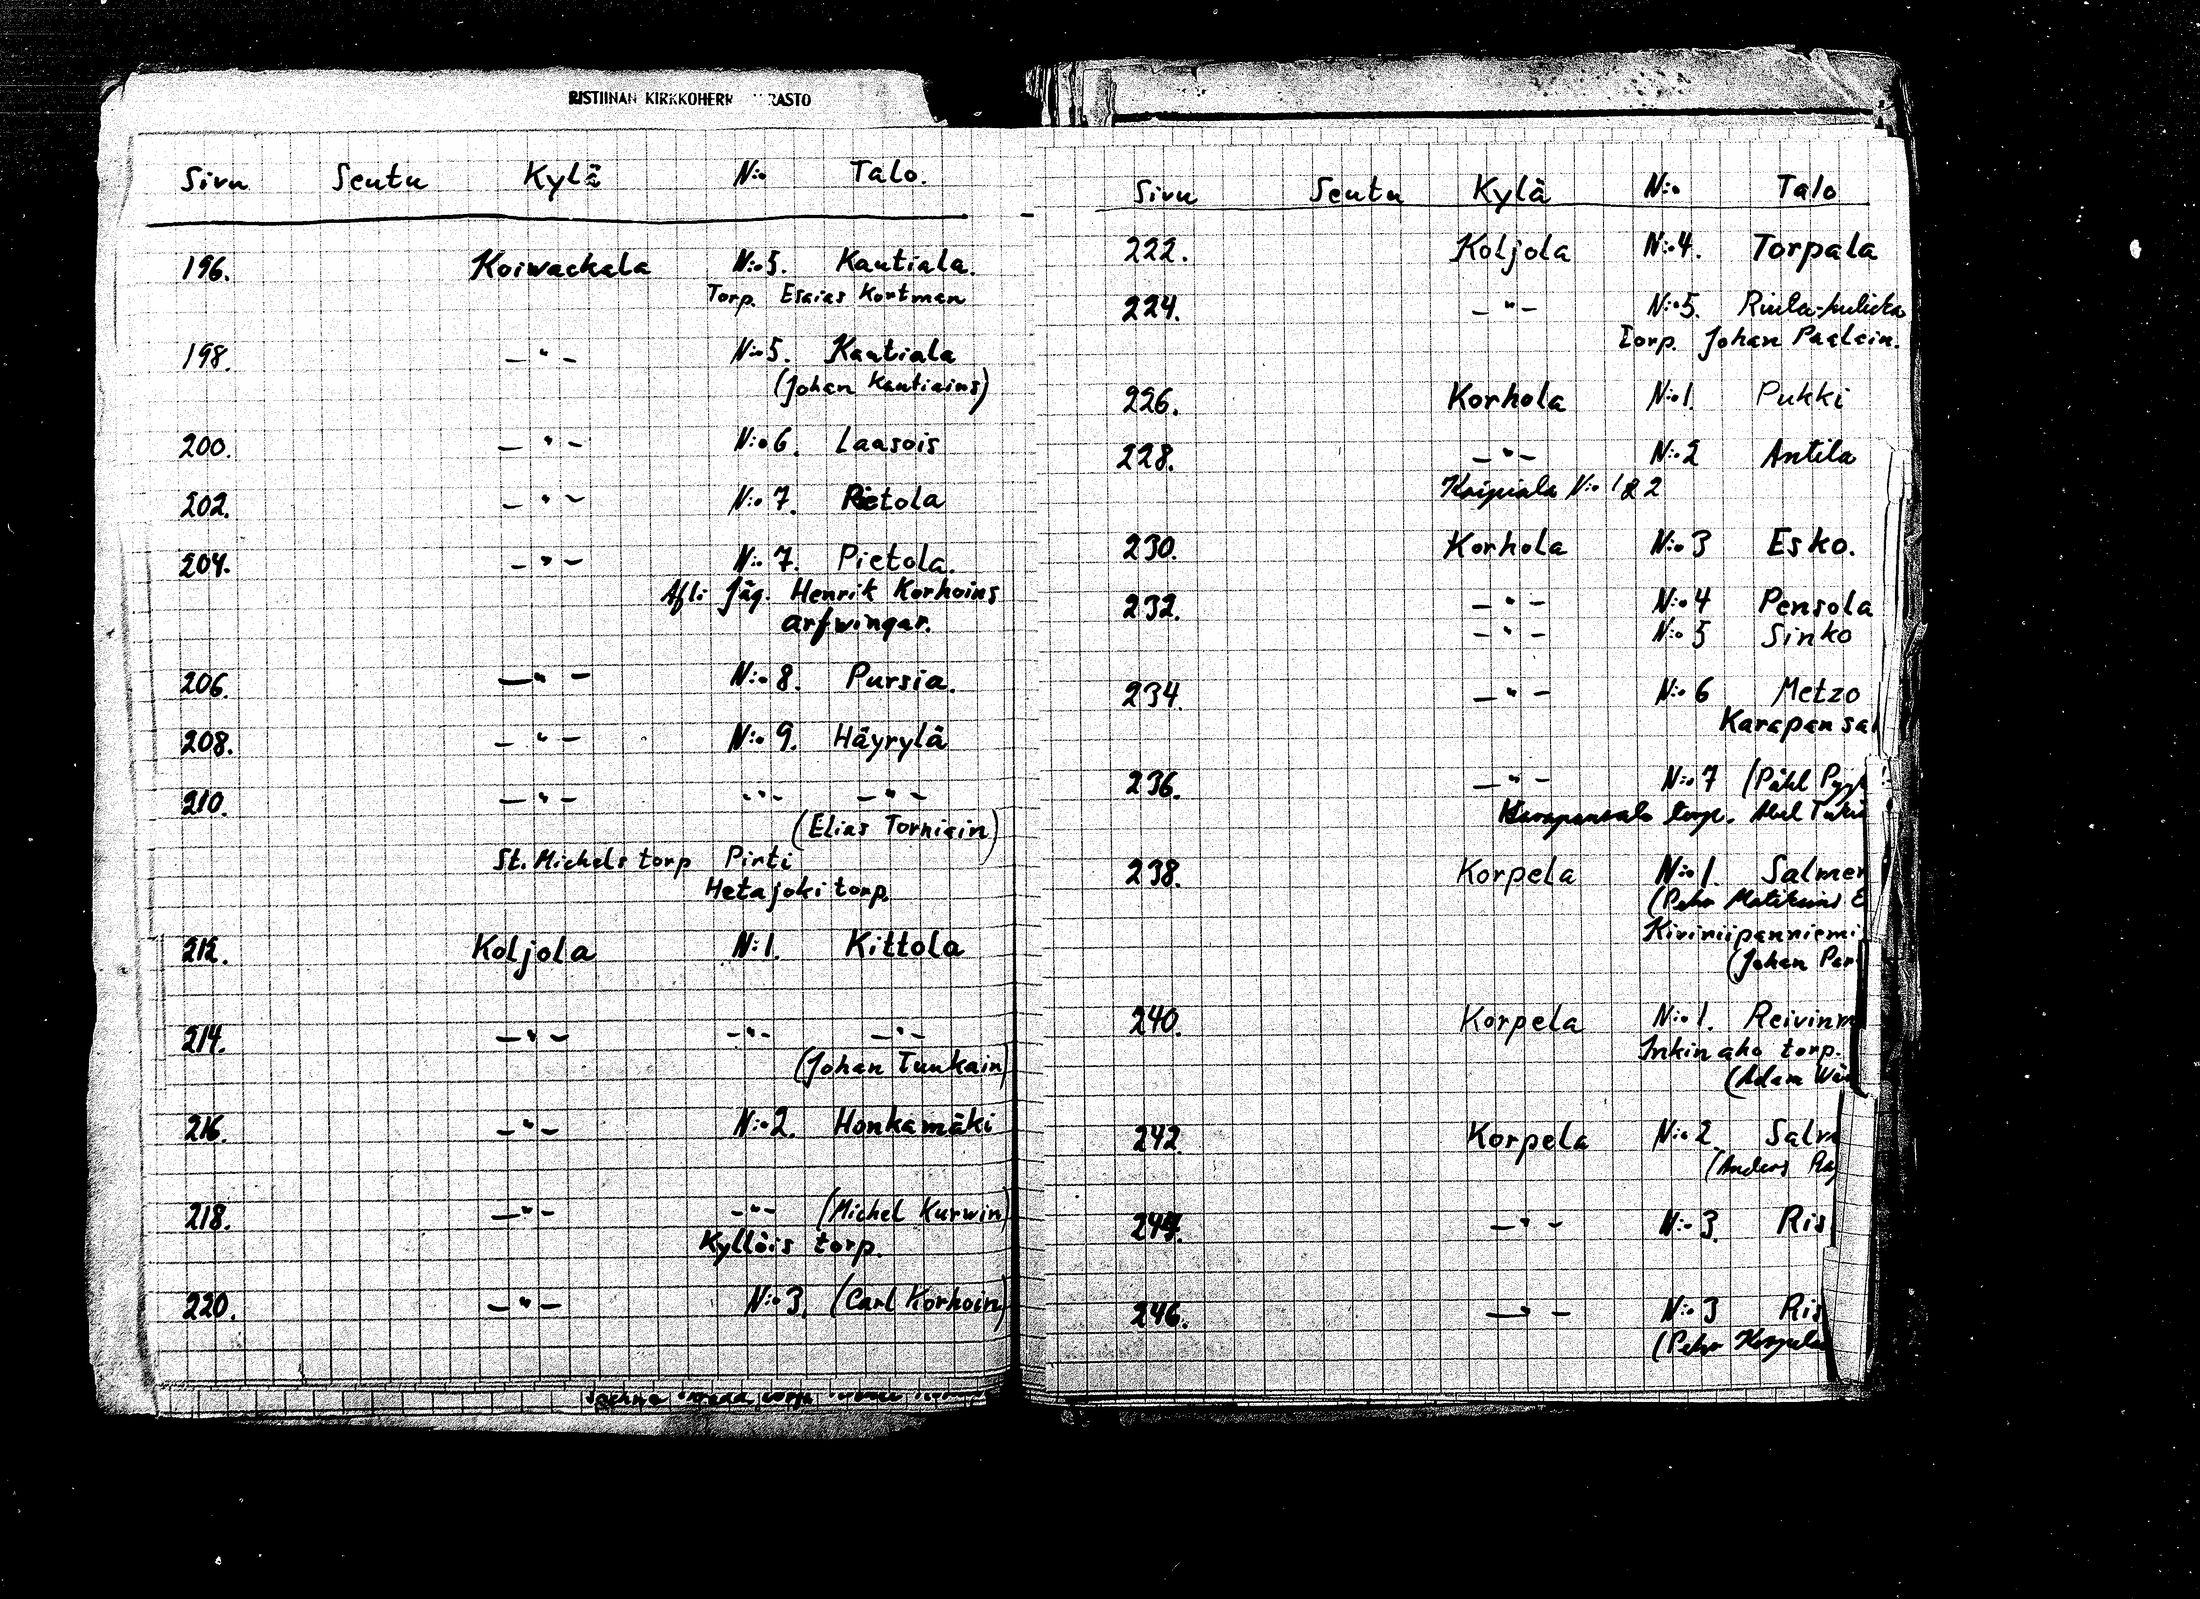 RISTIINAN KIRKKOHERR RASTO
Sivu Seutu Kylä N:o Talo.
196. Koiwackala N:o 5. Kautiala.
Torp. Esaias Kortman
198. — " — N:o 5. Kautiala
(Johan Kautiains)
200. — " — N:o 6. Laasois
202. — " — N:o 7. Pietola
204. — " — N:o 7. Pietola.
Afl: Jäg. Henrik Korhoins
arfwingar.
206. — " — N:o 8. Pursia.
208. — " — N:o 9. Häyrylä
210. — " — - " - — " —
(Elias Torniain)
St. Michels torp Pirti
Hetajoki torp.
212. Koljola N:1. Kittola
214. — " — — " — — " —
(Johan Tuukain)
216. — " — N:o 2. Honkamäki
218. — " — — " — (Michel Kurwin)
Kyllöis torp.
220. — " — N:o 3. (Carl Korhoin)
Sivu Seutu Kylä N:o Talo
222. Koljola N:o 4. Torpala
224. — " — N:o 5.
Torp. Johan Paalain.
226. Korhola N:o 1. Pukki
228. — " — N:o 2 Antila
N:o 1 & 2
230. Korhola N:o 3 Esko.
232. — " — N:o 4 Pensola
— " — N:o 5 Sinko
234. — " — N:o 6 Metzo
Karapansal
236. — " — N:o 7 (Påhl Pyyk
Karapansalo torp. Abel
238. Korpela N:o 1. Salmen
(Pehr Matikains E
Kiviniipanniemi
(Johan Par
240. Korpela N:o 1. Reivinm
Inkinaho torp.
(Adam Wä
242. Korpela N:o 2. Salm
(Anders
244. — " — N:o 3. Ris
246. — " — N:o 3 Ris
(Pehr Korpela